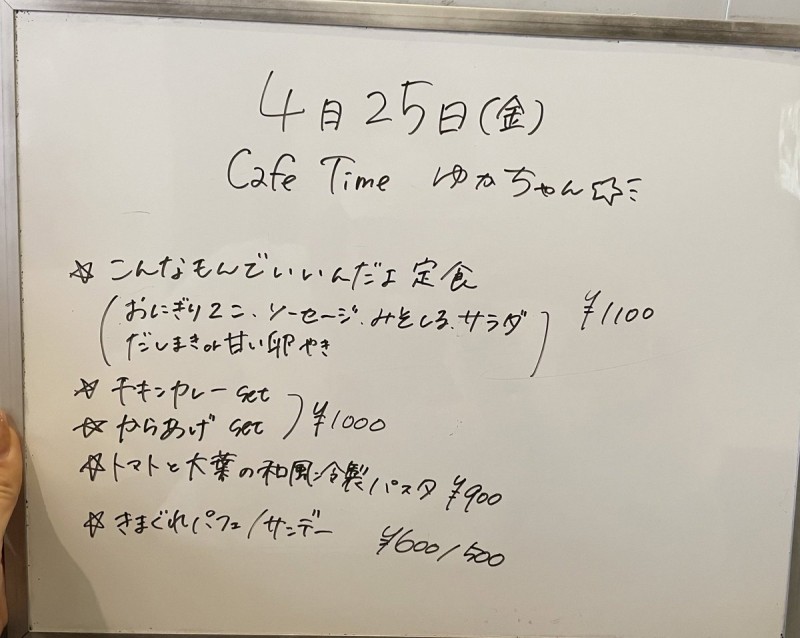 4月25日(金)
Cafe Time ゆかちゃん☆ミ
☆ こんなもんでいいんだよ 定食
(おにぎり2こ、ソーセージ、みそしる、サラダ
だしまきor甘い卵やき) ¥1100
☆ チキンカレー set
☆ からあげ set ) ¥1000
☆ トマトと大葉の和風冷製パスタ ¥900
☆ きまぐれパフェ/サンデー ¥600/500